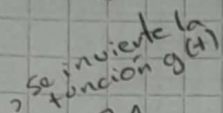 , se invierte la
función g(t)